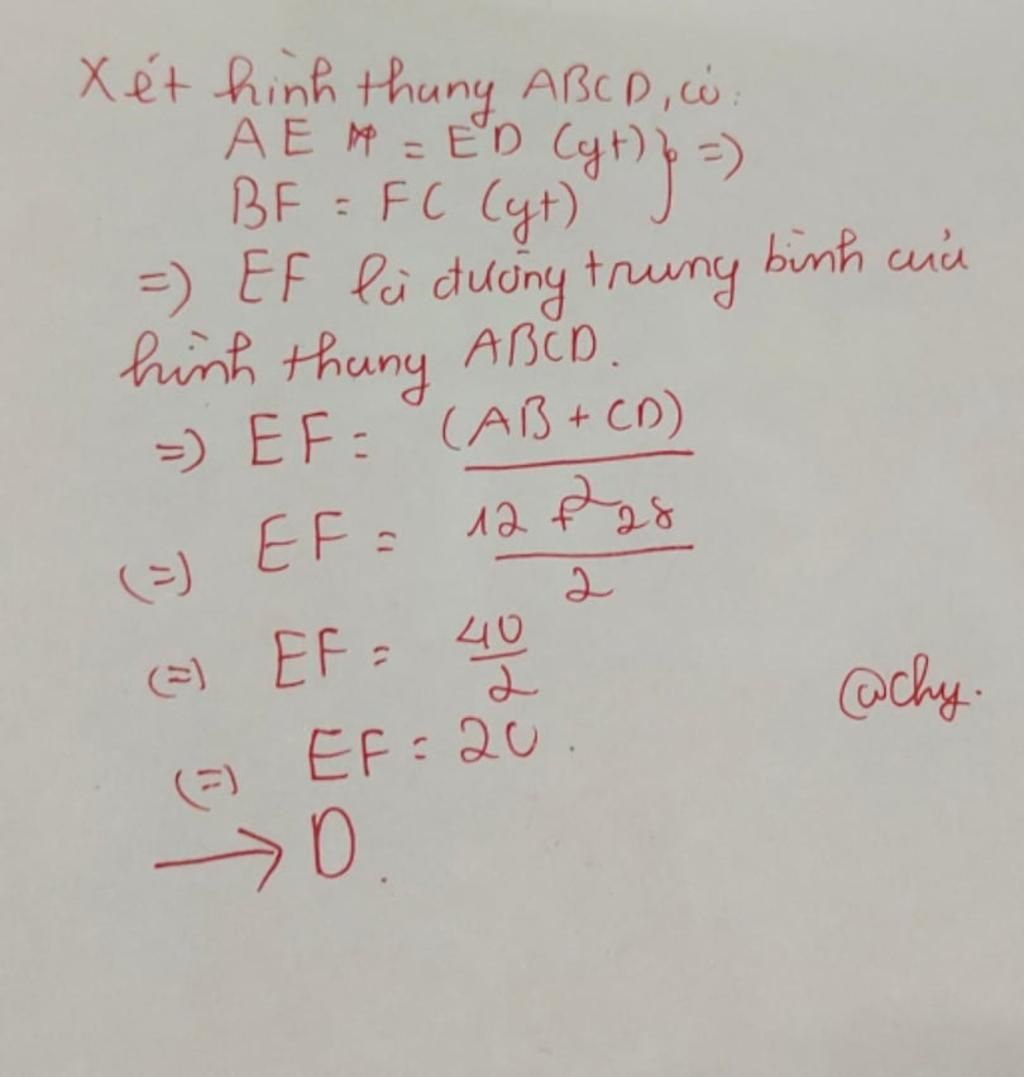 Xét hình thang ABCD, có:
AE = ED (gt) } =>
BF = FC (gt)
=> EF là đường trung bình của
hình thang ABCD.
=> EF = (AB + CD) / 2
(=) EF = 12 + 28 / 2
(=) EF = 40 / 2
(=) EF = 20.
→ D.
@chy.